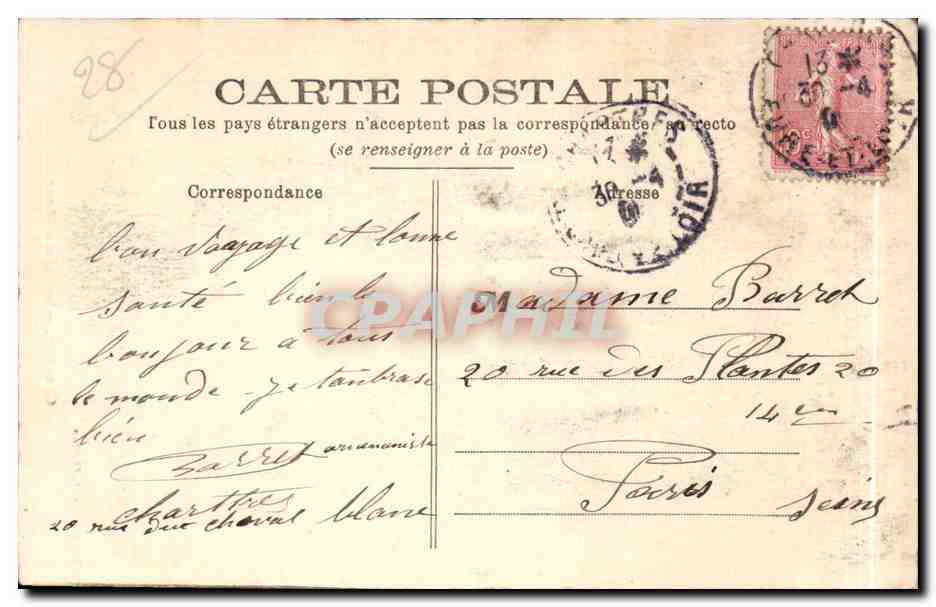 28
CARTE POSTALE
Tous les pays étrangers n'acceptent pas la correspondance au recto
(se renseigner à la poste)
Correspondance
bon voyage et bonne
santé bien le
bonjour a tous
le monde je tanbrase
bien
Barret
charttres
20 rue du cheval blanc
Adresse
Madame Barret
20 rue des Plantes 20
14 em
Paris
Seine
13
30 -4
EURE-ET-LOIR
30 -4
LOIR
CPAPHIL